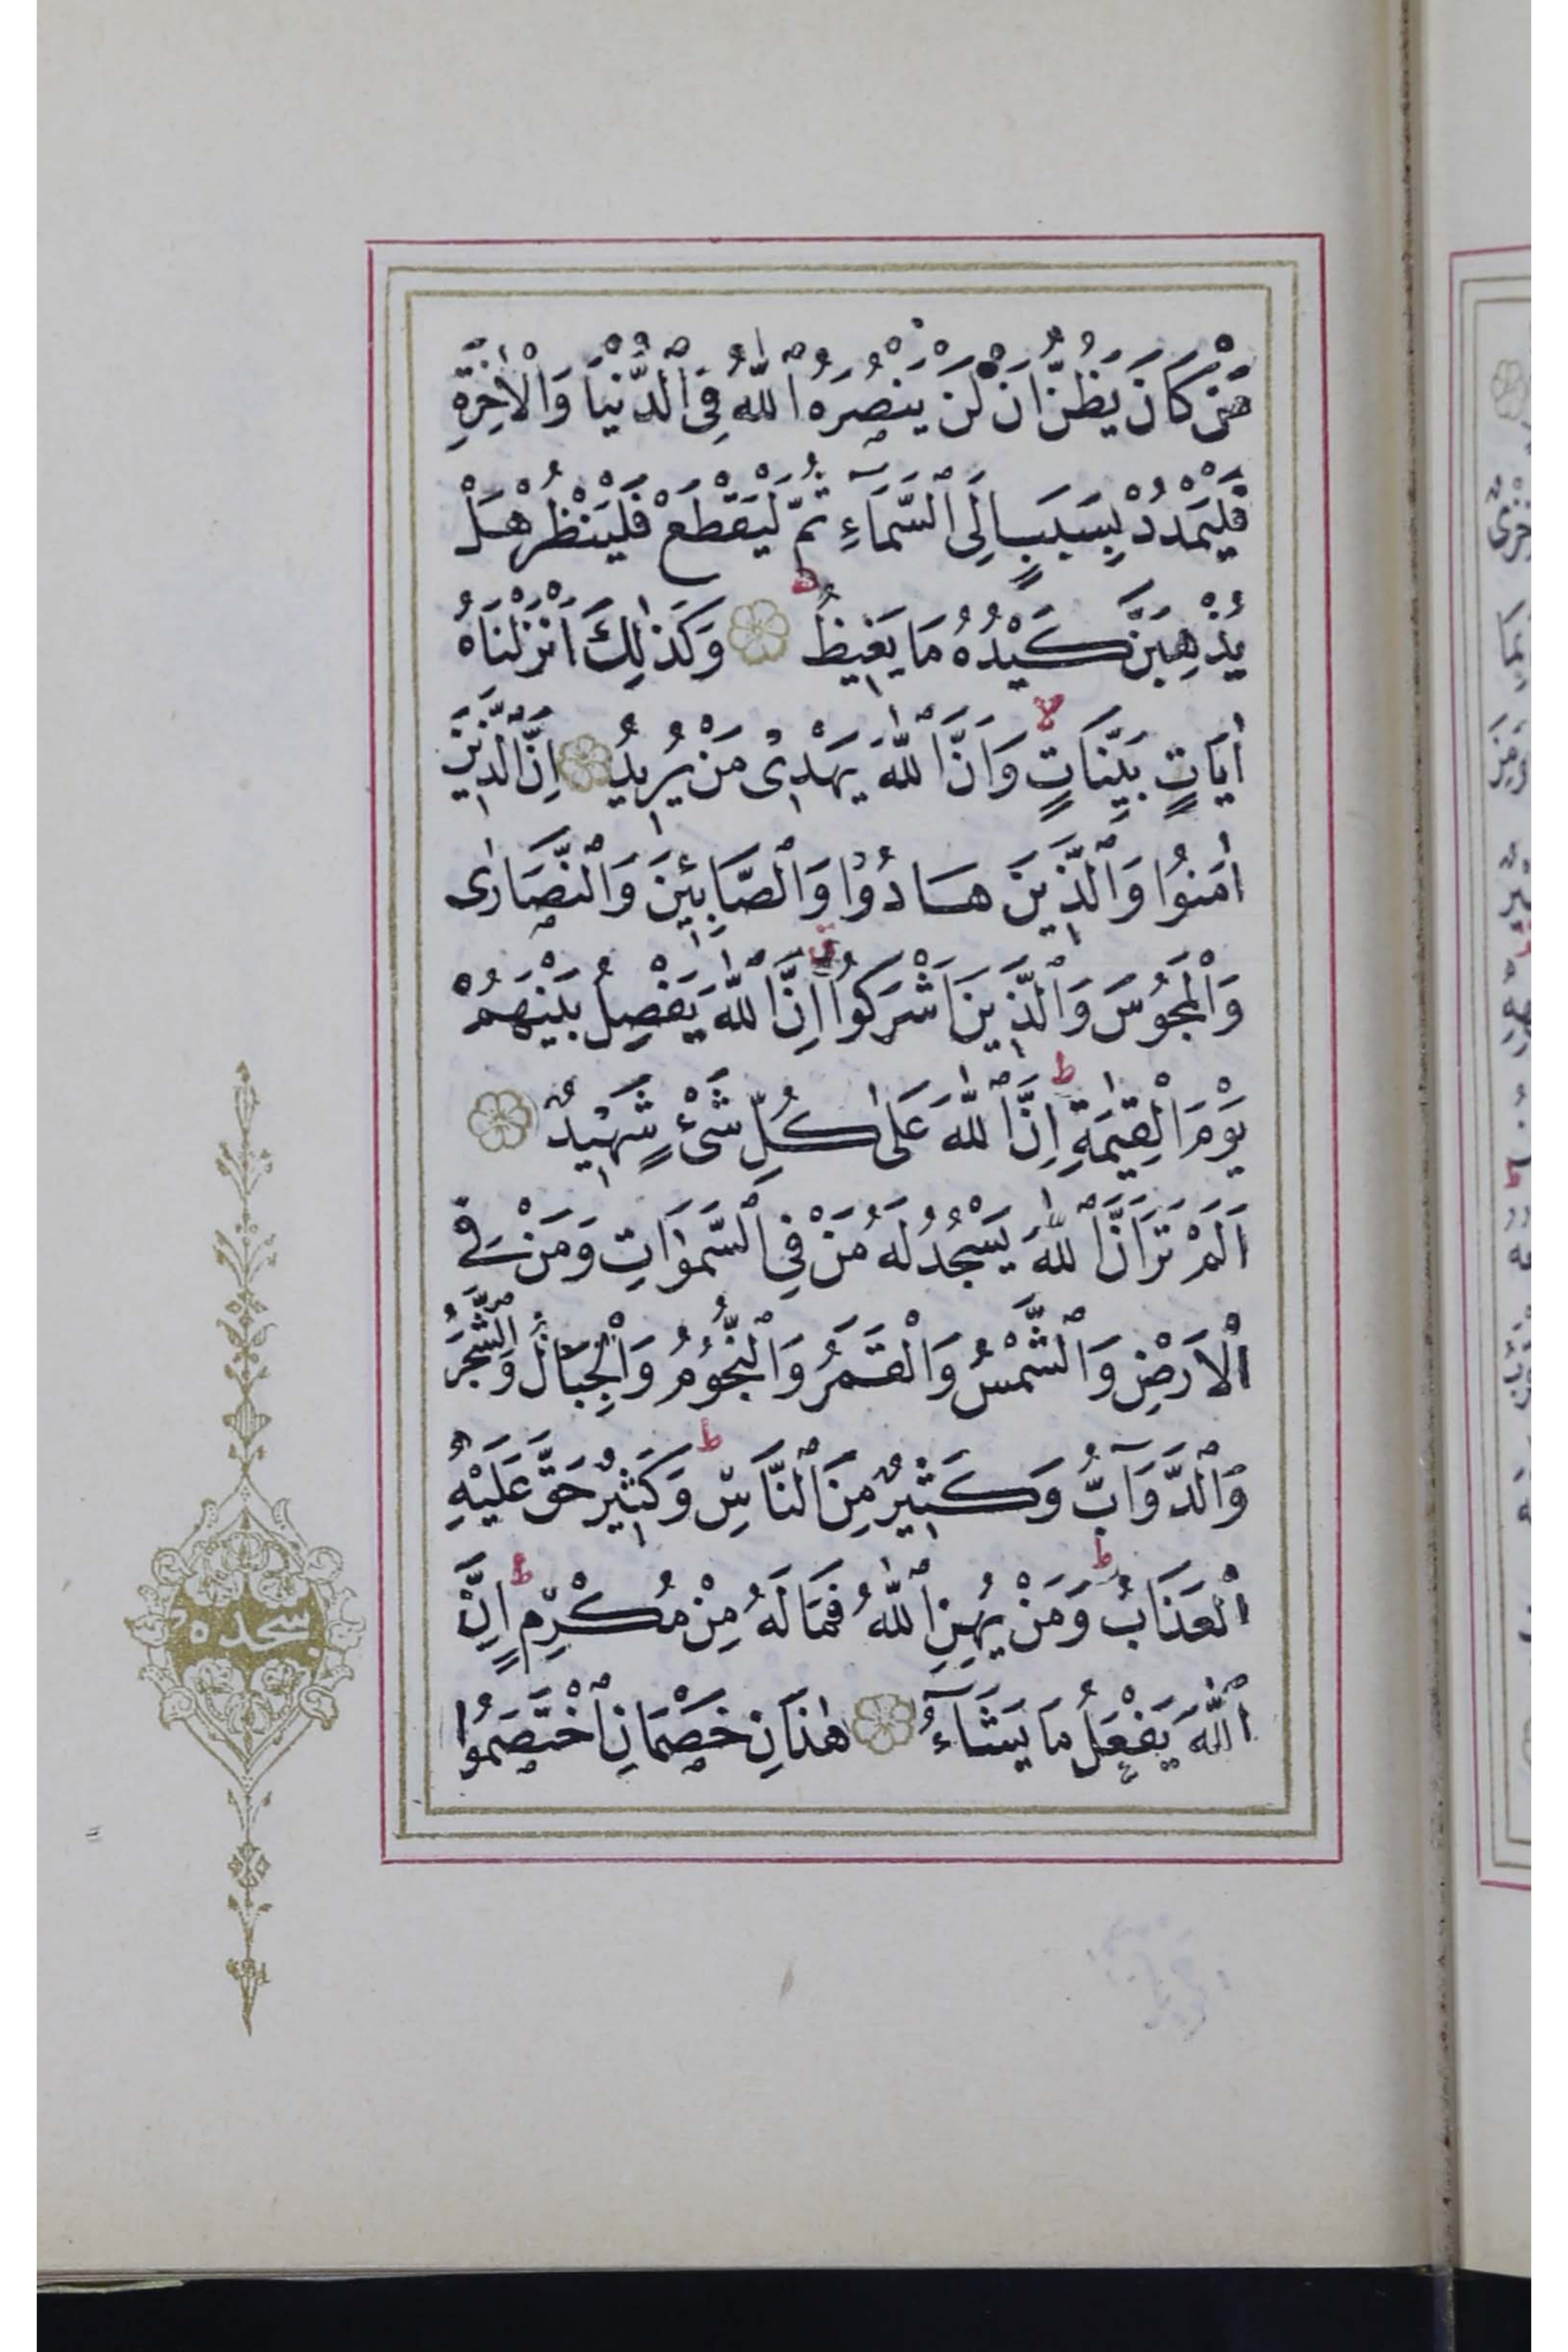 مَنْ كَانَ يَظُنُّ اَنْ لَنْ يَنْصُرَهُ ٱللّٰهُ فِى ٱلدُّنْيَا وَالْاٰخِرَةِ
فَلْيَمْدُدْ بِسَبَبٍ اِلَى ٱلسَّمَآءِ ثُمَّ لْيَقْطَعْ فَلْيَنْظُرْ هَلْ
يُذْهِبَنَّ كَيْدُهُ مَا يَغِيظُ وَكَذٰلِكَ اَنْزَلْنَاهُ
اٰيَاتٍ بَيِّنَاتٍ وَاَنَّ ٱللّٰهَ يَهْدِى مَنْ يُرِيدُ اِنَّ ٱلَّذِينَ
اٰمَنُوا وَٱلَّذِينَ هَادُوا وَٱلصَّابِئِينَ وَٱلنَّصَارٰى
وَالْمَجُوسَ وَٱلَّذِينَ اَشْرَكُوا اِنَّ ٱللّٰهَ يَفْصِلُ بَيْنَهُمْ
يَوْمَ الْقِيٰمَةِ اِنَّ ٱللّٰهَ عَلٰى كُلِّ شَىْءٍ شَهِيدٌ
اَلَمْ تَرَ اَنَّ ٱللّٰهَ يَسْجُدُ لَهُ مَنْ فِى ٱلسَّمٰوَاتِ وَمَنْ فِى
الْاَرْضِ وَٱلشَّمْسُ وَالْقَمَرُ وَٱلنُّجُومُ وَالْجِبَالُ وَٱلشَّجَرُ
وَٱلدَّوَآبُّ وَكَثِيرٌ مِنَ ٱلنَّاسِ وَكَثِيرٌ حَقَّ عَلَيْهِ
الْعَذَابُ وَمَنْ يُهِنِ ٱللّٰهُ فَمَا لَهُ مِنْ مُكْرِمٍ اِنَّ
ٱللّٰهَ يَفْعَلُ مَا يَشَآءُ هٰذَانِ خَصْمَانِ ٱخْتَصَمُوا
سجده